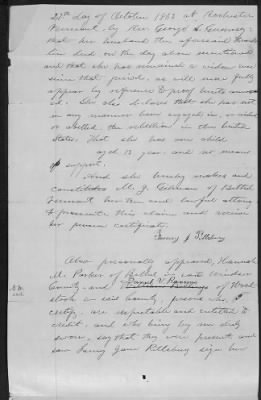 21st day of October 1863 at Rochester
Vermont by Rev. George S. Guernsey
that her husband the aforesaid
died on the day above mentioned
and that she has remained a widow ever
since that period, as will more fully
appear by reference to proof
. She also declares that she has not
in any manner been engaged in, or aided
or abetted the rebellion in the United
States. That she has one child,
aged 13 year and no means
of support.
And she hereby makes and
constitutes M. J. Gilman of Bethel
Vermont her true and lawful attorney
to prosecute this claim and receive
her pension certificate.
Fanny J Pillsbury
Also personally appeared, Hannah
M. Parker of Bethel in said Windsor
County and of Wood
stock in said County, persons who, I
certify, are respectable and entitled to
credit, and who being by me duly
sworn, say that they were present and
saw Fanny Jane Pillsbury sign her